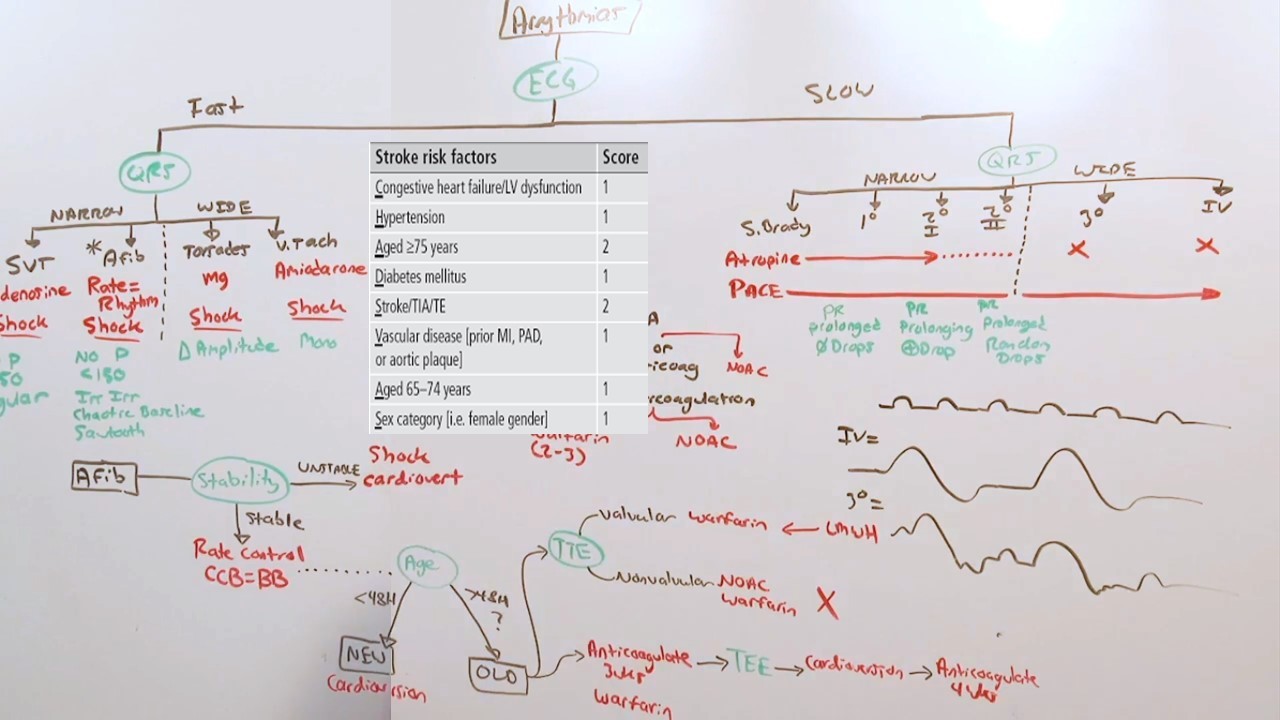 Arrythmias
ECG
Fast
SLOW
QRS
QRS
NARROW
WIDE
NARROW
WIDE
SVT
* Afib
Torsades
V. Tach
S. Brady
1°
2° I
2° II
3°
IV
denosine
Rate=
Rhythm
mg
Amiodarone
Shock
Shock
Shock
Shock
Atropine
X
X
PACE
P
50
gular
NO P
<150
Irr Irr
Chaotic Baseline
Sawtooth
Δ Amplitude
Mono
PR
prolonged
Ø Drops
PR
Prolonging
⊕Drop
PR
Prolonged
Random
Drops
Stroke risk factors Score
Congestive heart failure/LV dysfunction 1
Hypertension 1
Aged ≥75 years 2
Diabetes mellitus 1
Stroke/TIA/TE 2
Vascular disease [prior MI, PAD,
or aortic plaque] 1
Aged 65–74 years 1
Sex category [i.e. female gender] 1
A
or
icoag
NOAC
coagulation
NOAC
warfarin
(2-3)
IV=
3°=
AFib
Stability
UNSTABLE
Shock
cardiovert
Stable
Rate control
CCB=BB
Age
<48H
>48H
?
NEW
Cardioversion
OLD
TTE
Valvular warfarin
LMWH
Nonvalvular NOAC
warfarin
X
Anticoagulate
3wks
warfarin
TEE
Cardioversion
Anticoagulate
4wks